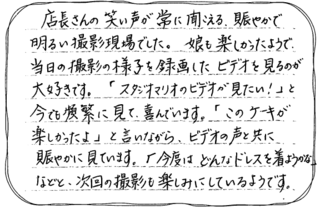 店長さんの笑い声が常に聞える、賑やかで
明るい撮影現場でした。娘も楽しかったようで、
当日の撮影の様子を録画したビデオを見るのが
大好きです。「スタジオマリオのビデオが見たい!」と
今でも頻繁に見て、喜んでいます。「このケーキが
楽しかったよ」と言いながら、ビデオの声と共に
賑やかに見ています。「今度はどんなドレスを着ようかな」
などと、次回の撮影も楽しみにしているようです。